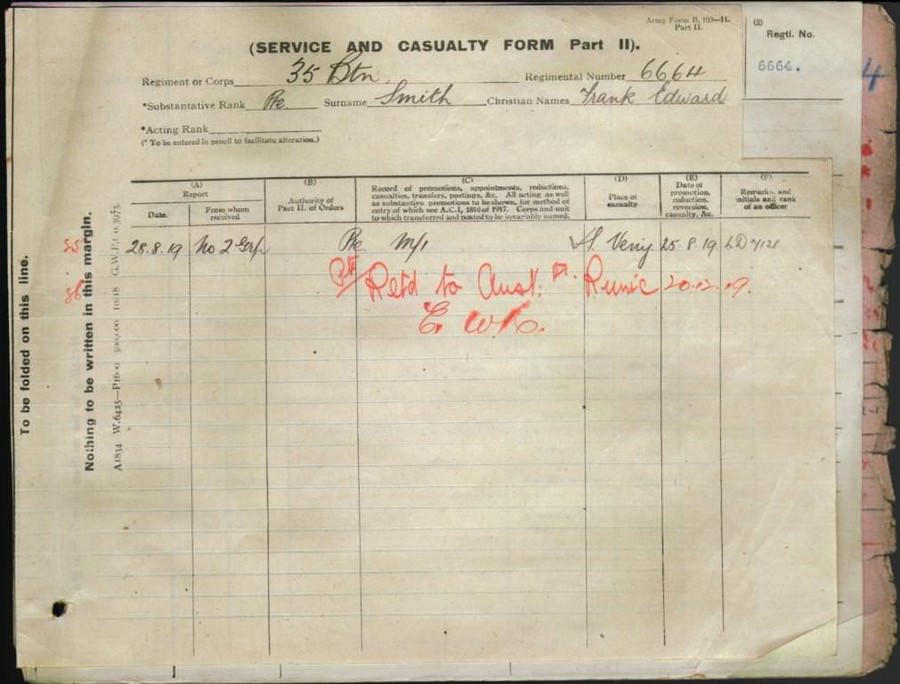 Army Form B. 103—II.
Part II.
(SERVICE AND CASUALTY FORM Part II).
Regiment or Corps 35 Btn. Regimental Number 6664
*Substantive Rank Pte Surname Smith Christian Names Frank Edward
*Acting Rank
(* To be entered in pencil to facilitate alteration.)
(2)
Regtl. No.
6664.
4
(A) (B) (C) (D) (E) (F)
Report
Date.
From whom received.
Authority of Part II. of Orders
Record of promotions, appointments, reductions, casualties, transfers, postings, &c. All acting as well as substantive promotions to be shown, for method of entry of which see A.C.I., 1816 of 1917. Corps and unit to which transferred and posted to be invariably named.
Place of casualty
Date of promotion, reduction, reversion, casualty, &c.
Remarks, and initials and rank of an officer
28.8.19 No 2 Grp Pte M/I S. Veny 25.8.19
Retd to Aust. Runic 20.12.19.
To be folded on this line.
Nothing to be written in this margin.